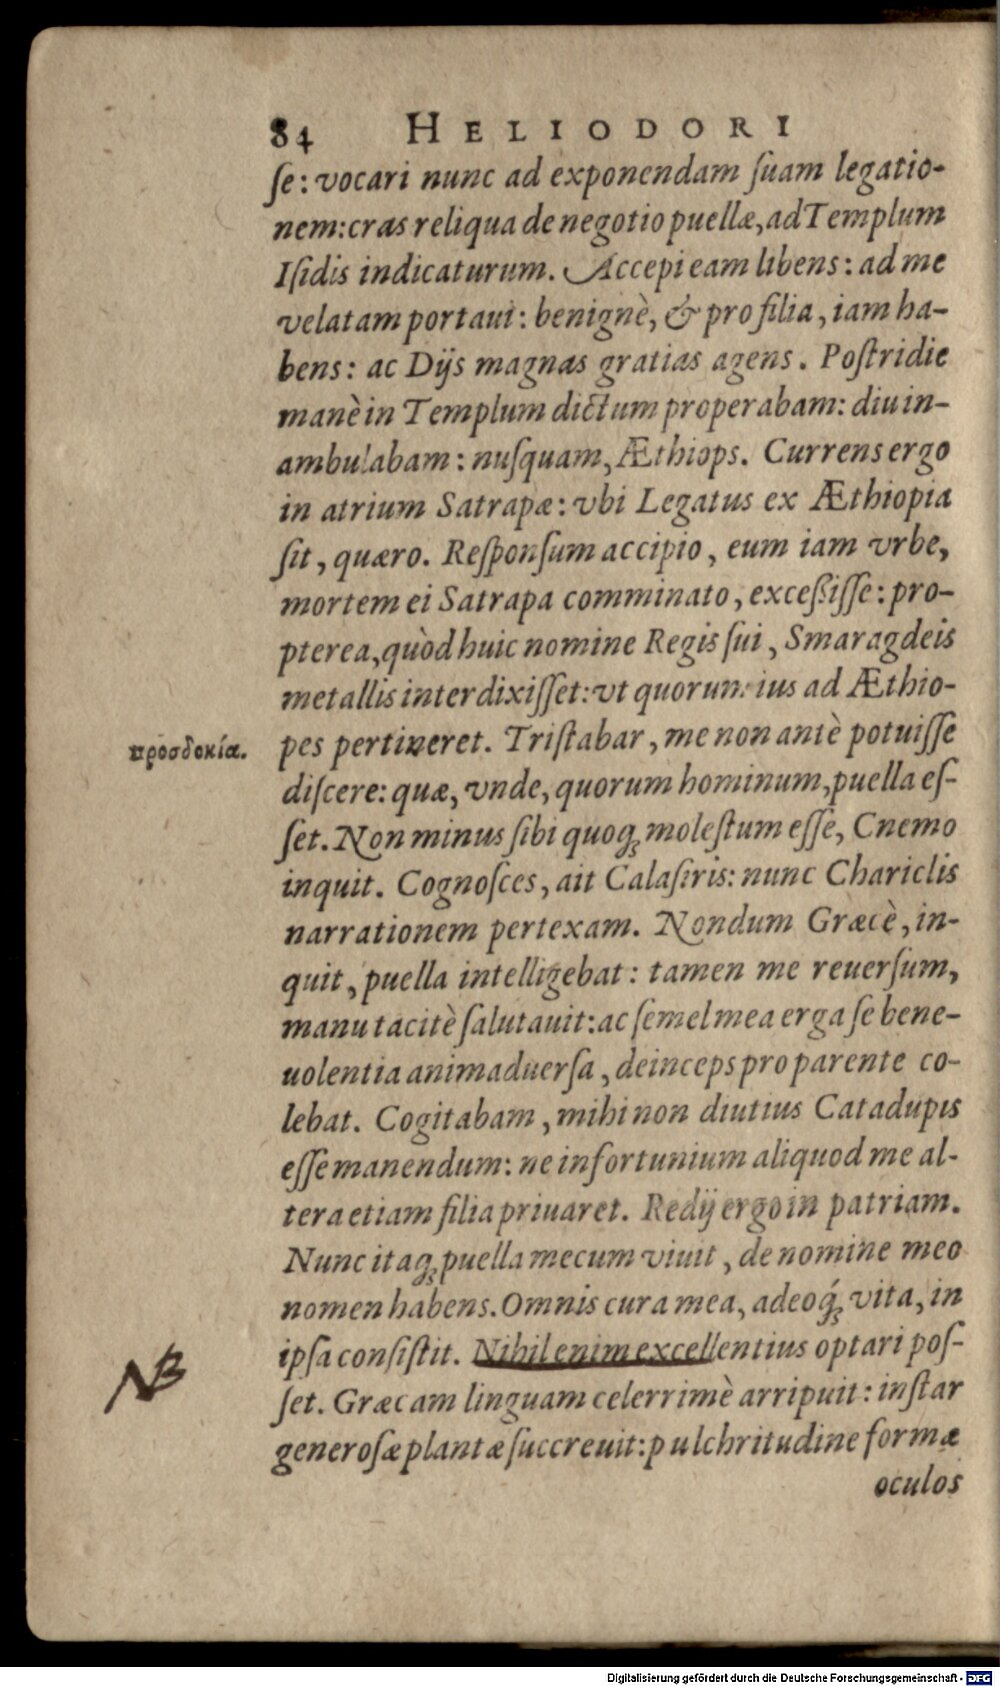 84 HELIODORI
ſe: vocari nunc ad exponendam ſuam legatio-
nem: cras reliqua de negotio puellæ, ad Templum
Iſidis indicaturum. Accepi eam libens: ad me
velatam portaui: benignè, & pro filia, iam ha-
bens: ac Dijs magnas gratias agens. Poſtridie
manè in Templum dictum properabam: diu in-
ambulabam: nuſquam, Æthiops. Currens ergo
in atrium Satrapæ: vbi Legatus ex Æthiopia
ſit, quæro. Reſponſum accipio, eum iam vrbe,
mortem ei Satrapa comminato, exceßiſſe: pro-
pterea, quòd huic nomine Regis ſui, Smaragdeis
metallis interdixiſſet: vt quorum ius ad Æthio-
προσδοκία.
pes pertineret. Triſtabar, me non antè potuiſſe
diſcere: quæ, vnde, quorum hominum, puella eſ-
ſet. Non minus ſibi quoq; moleſtum eſſe, Cnemo
inquit. Cognoſces, ait Calaſiris: nunc Chariclis
narrationem pertexam. Nondum Græcè, in-
quit, puella intelligebat: tamen me reuerſum,
manu tacitè ſalutauit: ac ſemel mea erga ſe bene-
uolentia animaduerſa, deinceps pro parente co-
lebat. Cogitabam, mihi non diutius Catadupis
eſſe manendum: ne infortunium aliquod me al-
tera etiam filia priuaret. Redij ergo in patriam.
Nunc itaq; puella mecum viuit, de nomine meo
nomen habens. Omnis cura mea, adeoq́; vita, in
ipſa conſiſtit. Nihil enim excellentius optari poſ-
NB
ſet. Græcam linguam celerrimè arripuit: inſtar
generoſæ plantæ ſuccreuit: pulchritudine formæ
oculos
Digitalisierung gefördert durch die Deutsche Forschungsgemeinschaft - DFG